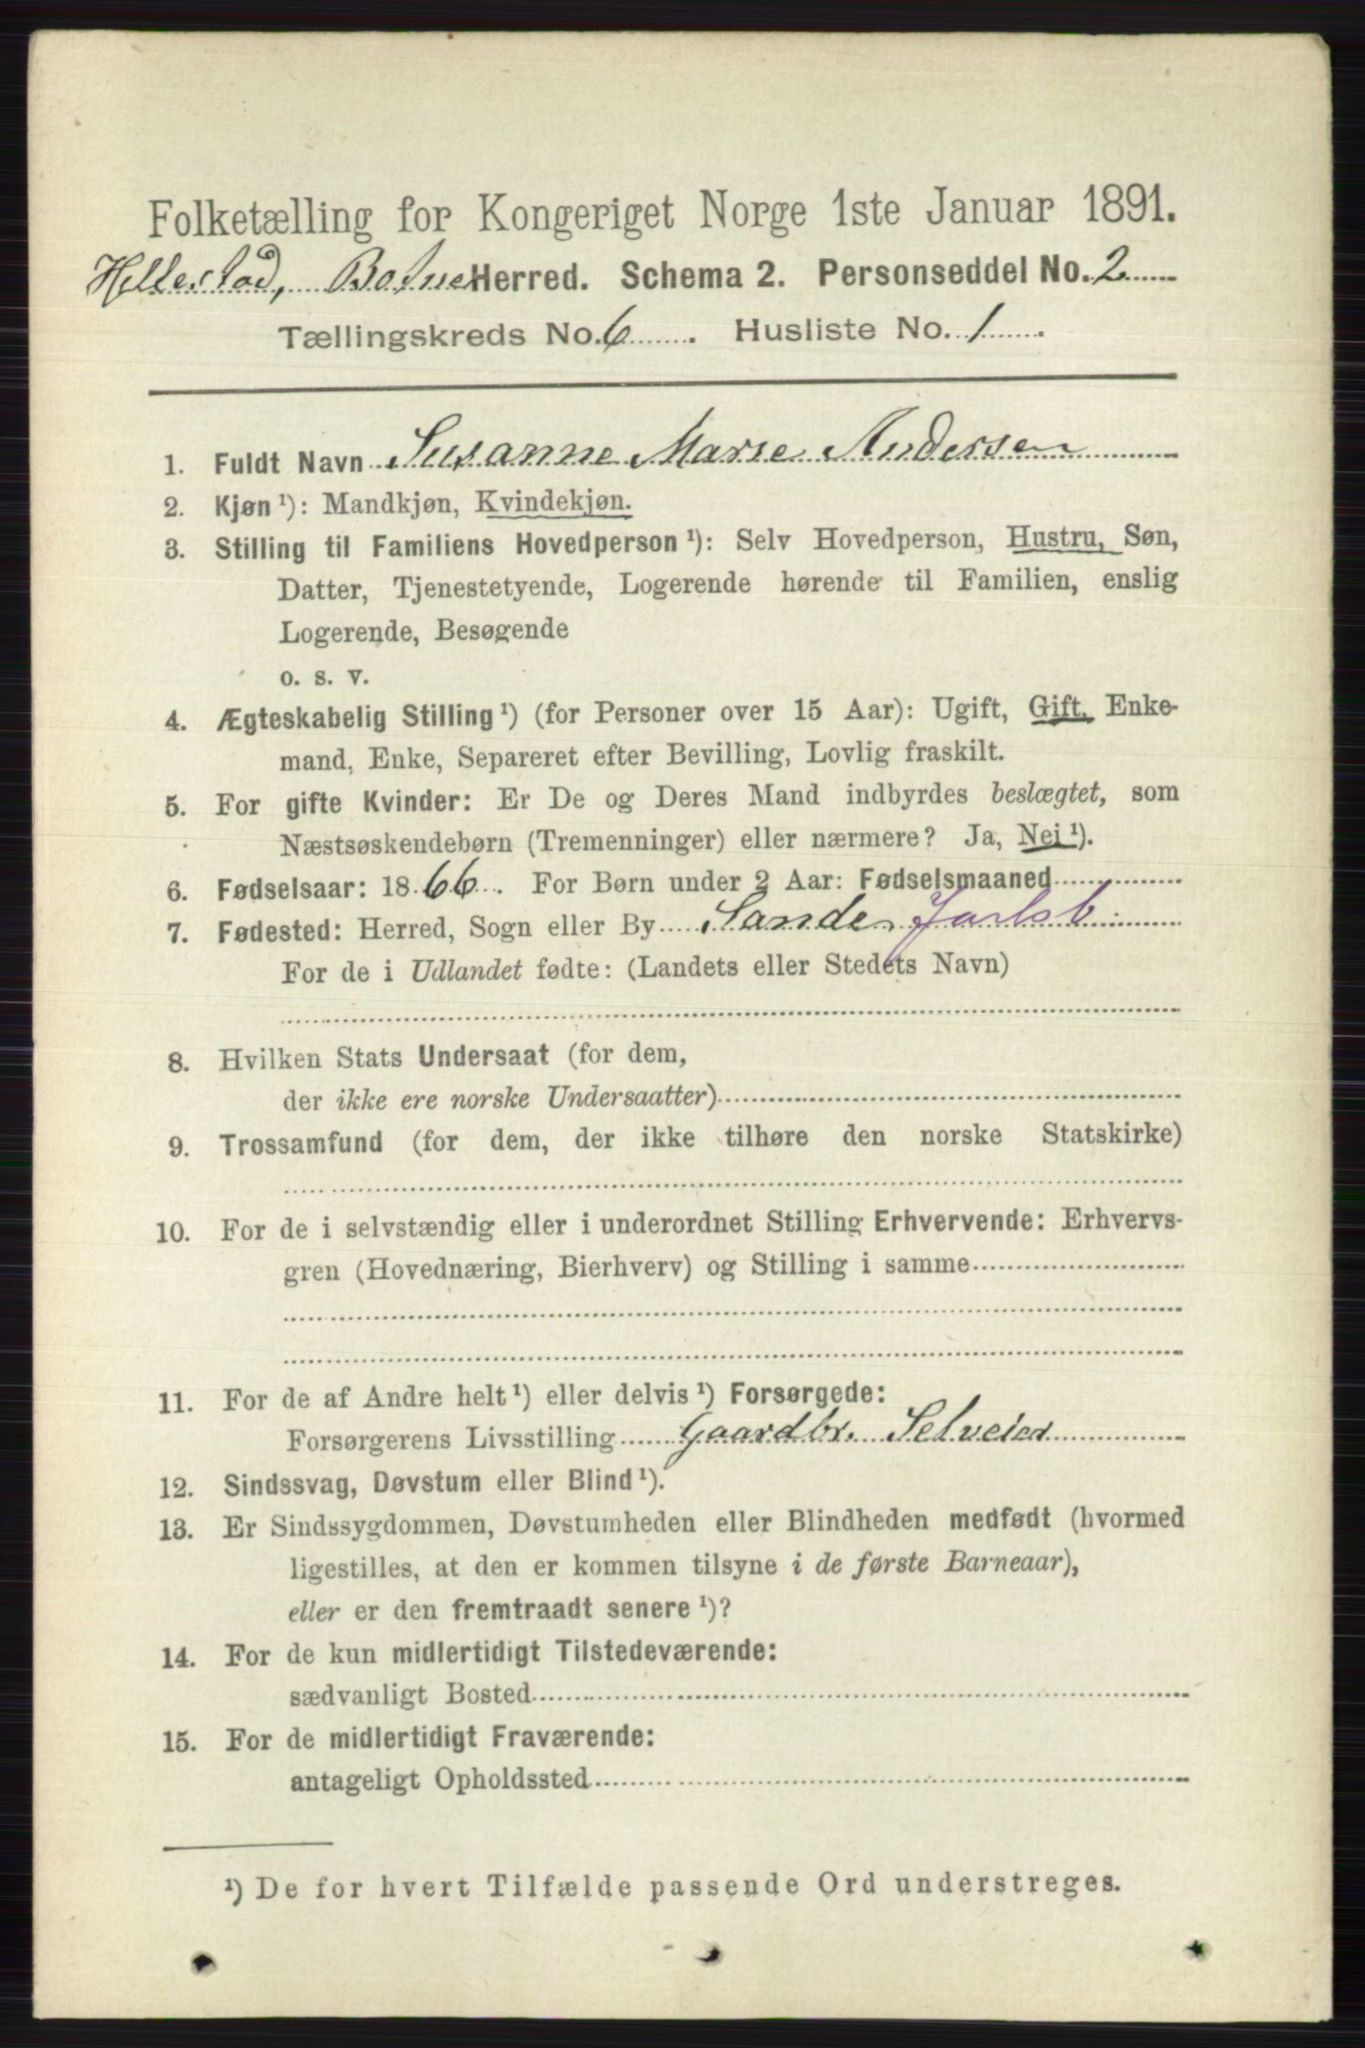 Folketælling for Kongeriget Norge 1ste Januar 1891.
Hillestad, Botne Herred. Schema 2. Personseddel No. 2
Tællingskreds No. 6. Husliste No. 1.
1. Fuldt Navn Susanne Marie Andersen
2. Kjøn ¹): Mandkjøn, Kvindekjøn.
3. Stilling til Familiens Hovedperson ¹): Selv Hovedperson, Hustru, Søn,
Datter, Tjenestetyende, Logerende hørende til Familien, enslig
Logerende, Besøgende
o. s. v.
4. Ægteskabelig Stilling ¹) (for Personer over 15 Aar): Ugift, Gift, Enke-
mand, Enke, Separeret efter Bevilling, Lovlig fraskilt.
5. For gifte Kvinder: Er De og Deres Mand indbyrdes beslægtet, som
Næstsøskendebørn (Tremenninger) eller nærmere? Ja, Nei ¹).
6. Fødselsaar: 1866. For Børn under 2 Aar: Fødselsmaaned
7. Fødested: Herred, Sogn eller By Sande, Jarlsb
For de i Udlandet fødte: (Landets eller Stedets Navn)
8. Hvilken Stats Undersaat (for dem,
der ikke ere norske Undersaatter)
9. Trossamfund (for dem, der ikke tilhøre den norske Statskirke)
10. For de i selvstændig eller i underordnet Stilling Erhvervende: Erhvervs-
gren (Hovednæring, Bierhverv) og Stilling i samme
11. For de af Andre helt ¹) eller delvis ¹) Forsørgede:
Forsørgerens Livsstilling Gaardbr. Selveier
12. Sindssvag, Døvstum eller Blind ¹).
13. Er Sindssygdommen, Døvstumheden eller Blindheden medfødt (hvormed
ligestilles, at den er kommen tilsyne i de første Barneaar),
eller er den fremtraadt senere ¹)?
14. For de kun midlertidigt Tilstedeværende:
sædvanligt Bosted
15. For de midlertidigt Fraværende:
antageligt Opholdssted
¹) De for hvert Tilfælde passende Ord understreges.